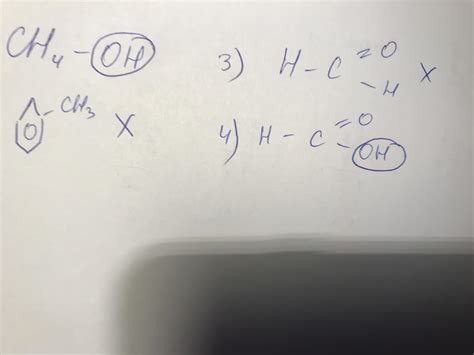 CH₄ - OH
CH₃ X
3) H - C = O - H X
4) H - C = O - OH